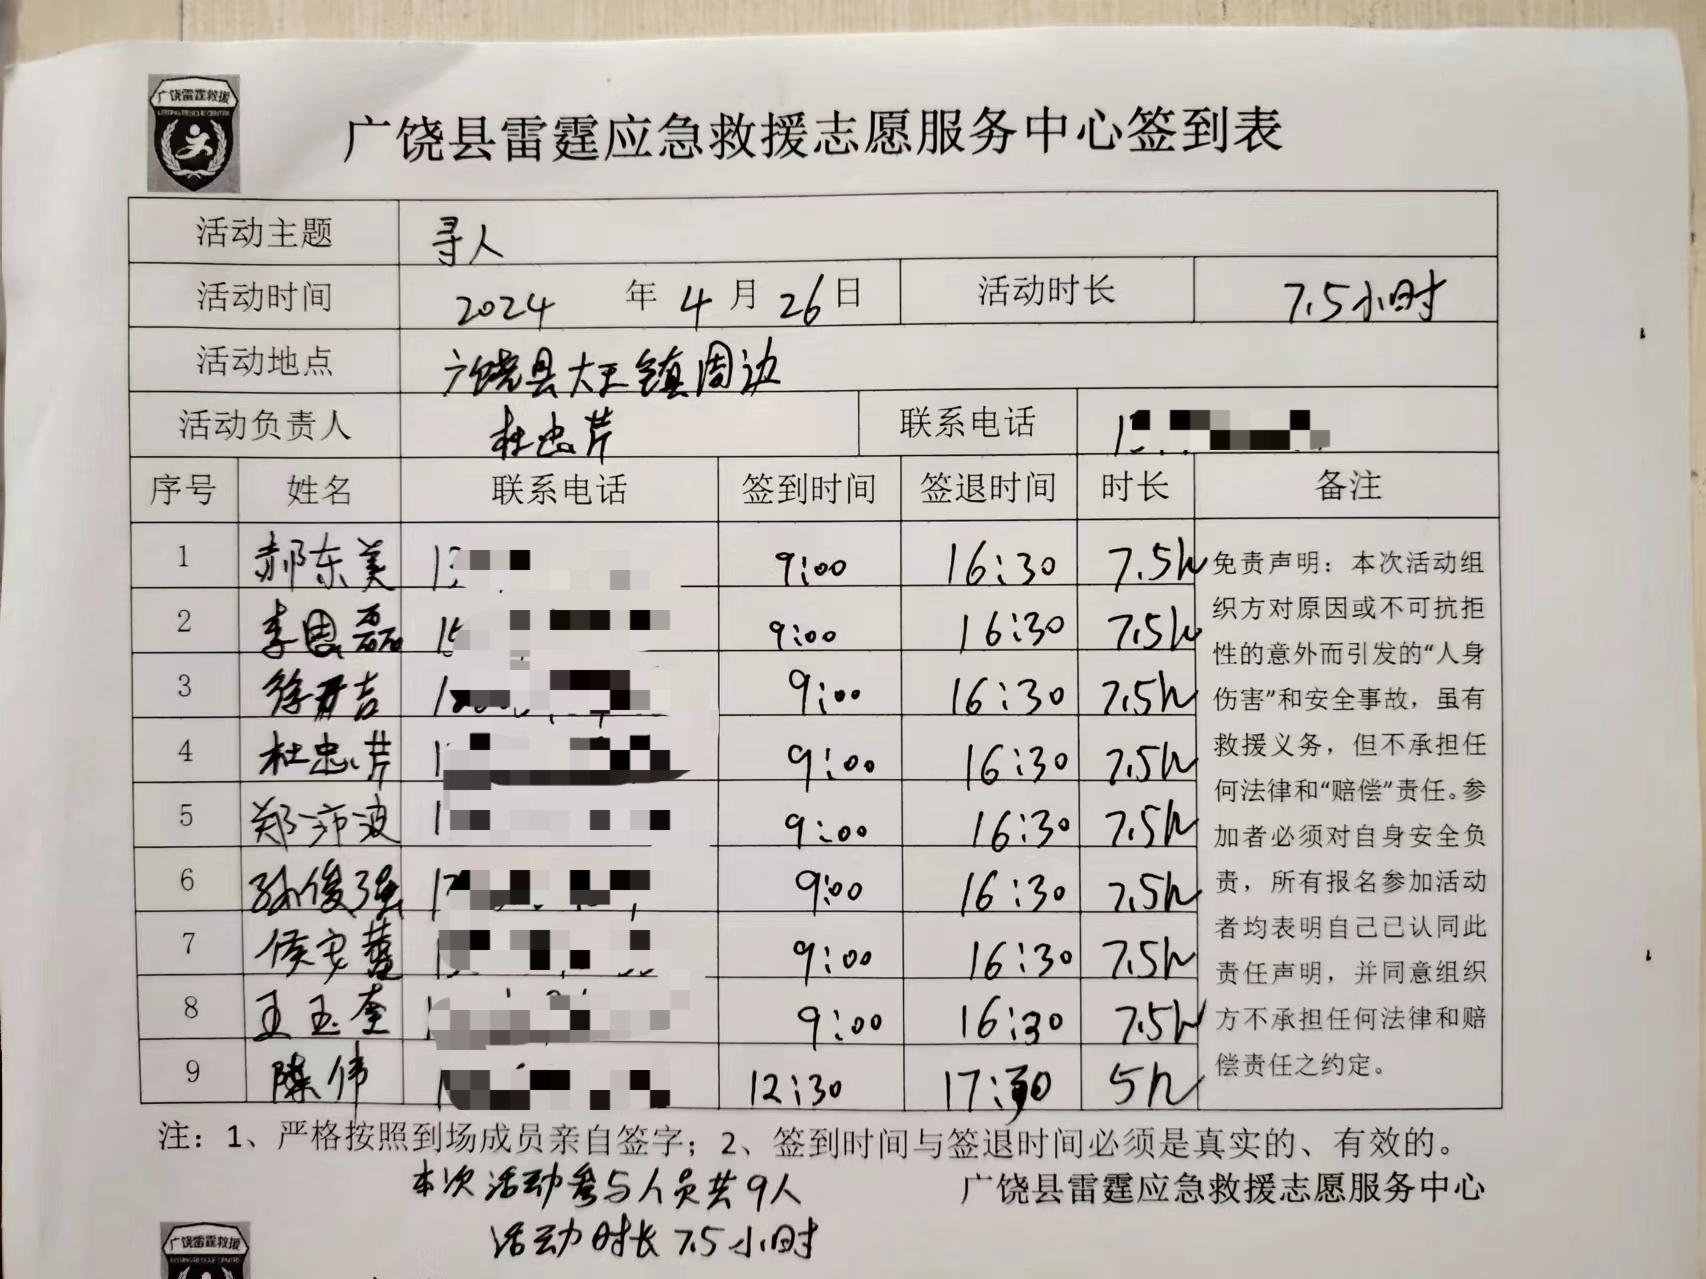 广饶雷霆救援
广饶县雷霆应急救援志愿服务中心签到表
活动主题 寻人
活动时间 2024 年 4 月 26 日 活动时长 7.5小时
活动地点 广饶县大王镇周边
活动负责人 杜忠芹 联系电话 1
序号 姓名 联系电话 签到时间 签退时间 时长 备注
1 郝东美 1 9:00 16:30 7.5h
2 李国磊 15 9:00 16:30 7.5h
3 徐 吉 1 9:00 16:30 7.5h
4 杜忠芹 1 9:00 16:30 7.5h
5 郑沛波 1 9:00 16:30 7.5h
6 孙俊强 1 9:00 16:30 7.5h
7 侯安 1 9:00 16:30 7.5h
8 王玉奎 1 9:00 16:30 7.5h
9 陈伟 1 12:30 17:30 5h
免责声明：本次活动组
织方对原因或不可抗拒
性的意外而引发的“人身
伤害”和安全事故，虽有
救援义务，但不承担任
何法律和“赔偿”责任。参
加者必须对自身安全负
责，所有报名参加活动
者均表明自己已认同此
责任声明，并同意组织
方不承担任何法律和赔
偿责任之约定。
注：1、严格按照到场成员亲自签字；2、签到时间与签退时间必须是真实的、有效的。
本次活动参与人员共9人
广饶县雷霆应急救援志愿服务中心
活动时长7.5小时
广饶雷霆救援